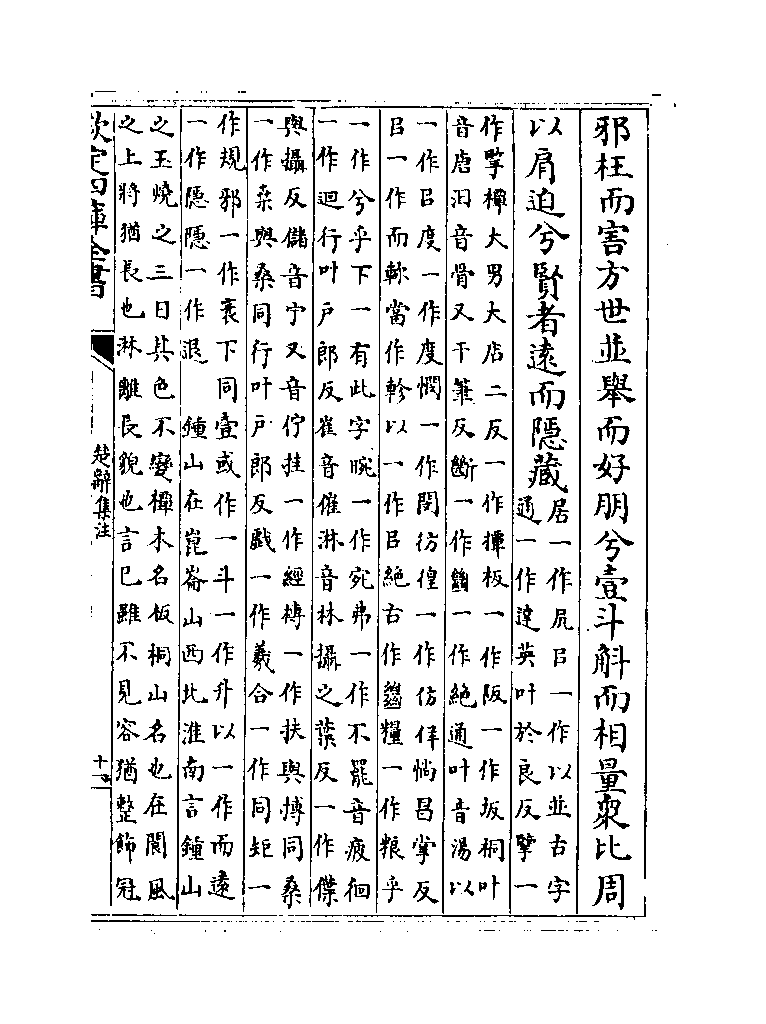 邪枉而害方世並舉而好朋兮壹斗斛而相量衆比周
以肩迫兮賢者遠而隱藏
居一作凥㠯一作以並古字
通一作達英叶於良反擥一
作擥橝大男大店二反一作撢板一作阪一作坂桐叶
音唐汩音骨又于筆反斷一作㡭一作絶通叶音湯以
一作㠯度一作度憫一作閔彷徨一作仿佯惝昌掌反
㠯一作而軫當作軫以一作㠯絶古作㡭糧一作粮乎
一作兮乎下一有此字晼一作宛弗一作不罷音疲徊
一作迴行叶戸郎反崔音催淋音林攝之葉反一作㒤
與攝反儲音宁又音佇挂一作經榑一作扶與搏同桑
一作桒與桑同行叶戸郎反戲一作羲合一作同矩一
作規邪一作衺下同壹或作一斗一作升以一作而遠
一作隱隱一作退　鍾山在崑崙山西北淮南言鍾山
之玉燒之三日其色不變橝木名板桐山名也在閬風
之上將猶長也淋離長貌也言已雖不見容猶整飾冠
欽定四庫全書
楚辭集注
十